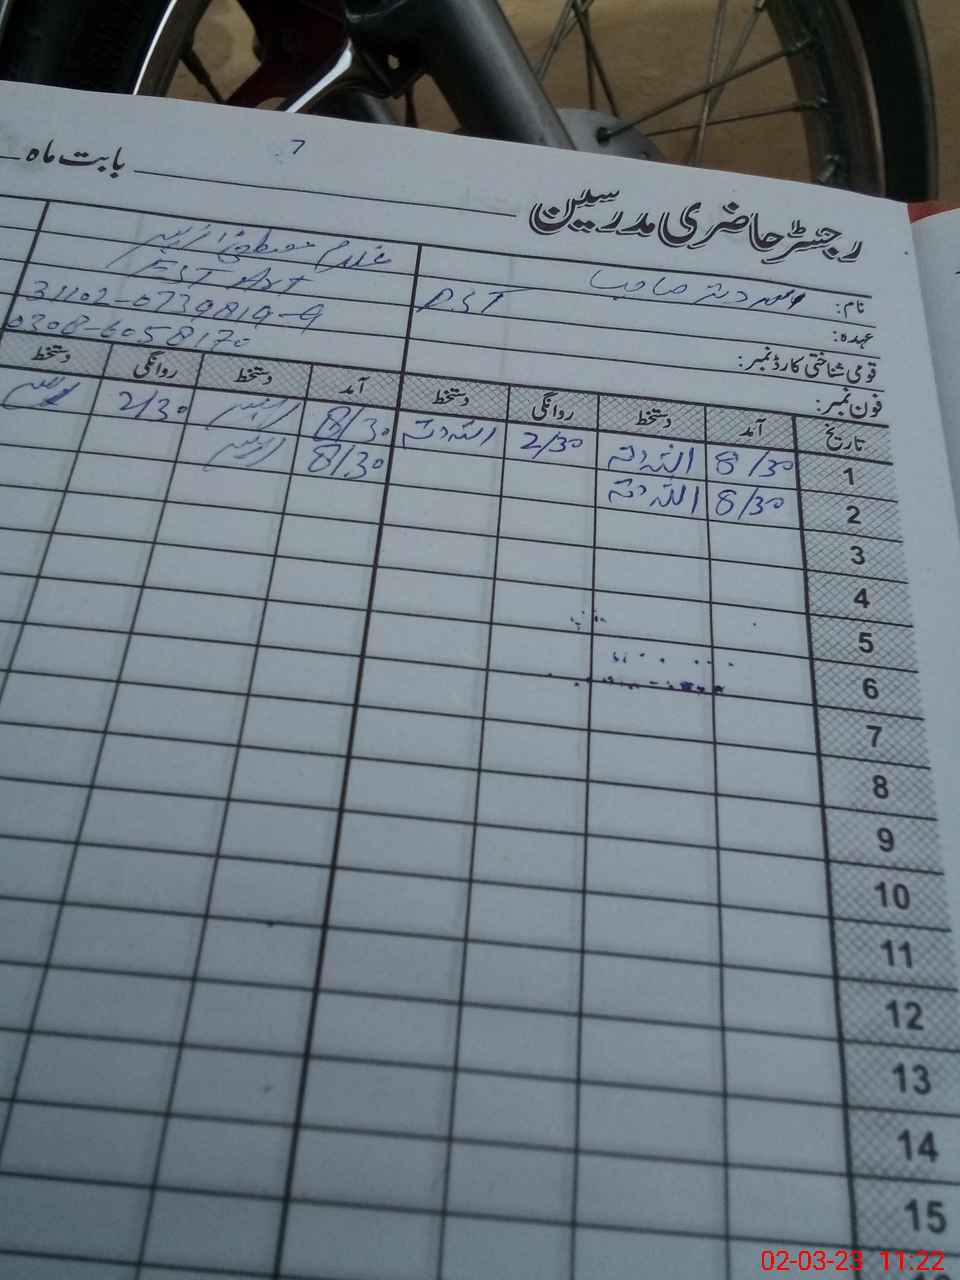 رجسٹر حاضری مدرسین
بابت ماہ
نام:
غلام مصطفیٰ
عہدہ: PST
EST Art
قومی شناختی کارڈ نمبر:
31102-0739819-9
فون نمبر:
0308-6058170
تاریخ آمد دستخط روانگی دستخط آمد دستخط روانگی دستخط
1 8/30 اللہ دتہ 2/30 اللہ دتہ 8/30 2/30
2 8/30 اللہ دتہ 8/30
3
4
5
6
7
8
9
10
11
12
13
14
15
02-03-23 11:22